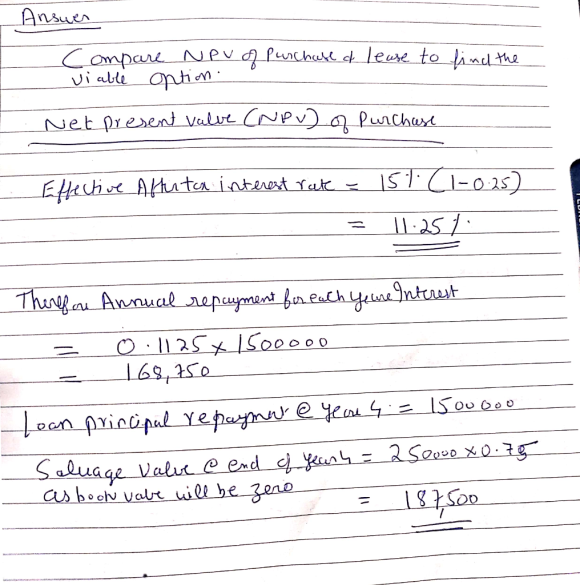 Answer
Compare NPV of Purchase & lease to find the
viable option.
Net present value (NPV) of Purchase
Effective After tax interest rate = 15% (1-0.25)
= 11.25%.
Therefore Annual repayment for each year Interest
= 0.1125 x 1500000
= 168,750
Loan principal repayment @ year 4 = 1500000
Salvage Value @ end of year 4 = 250000 x 0.75
as book value will be zero
= 187,500